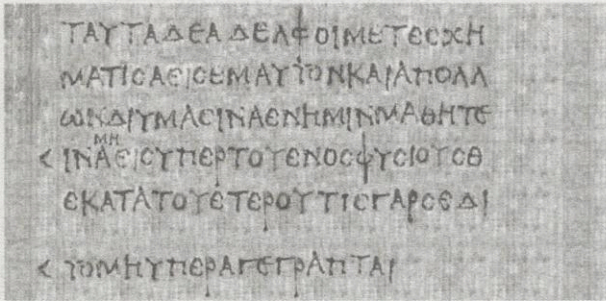 ΤΑΥΤΑΔΕΑΔΕΛΦΟΙΜΕΤΕCΧΗ
ΜΑΤΙCΑΕΙCΕΜΑΥΤΟΝΚΑΙΑΠΟΛΛ
ΩΝΔΙΥΜΑCΙΝΑΕΝΗΜΙΝΜΑΘΗΤΕ
ΜΗ
< ΙΝΑΕΙCΥΠΕΡΤΟΥΕΝΟCΦΥCΙΟΥCΘ
ΕΚΑΤΑΤΟΥΕΤΕΡΟΥΤΙCΓΑΡCΕΔΙ
< ΤΟΜΗΥΠΕΡΑΓΕΓΡΑΠΤΑΙ